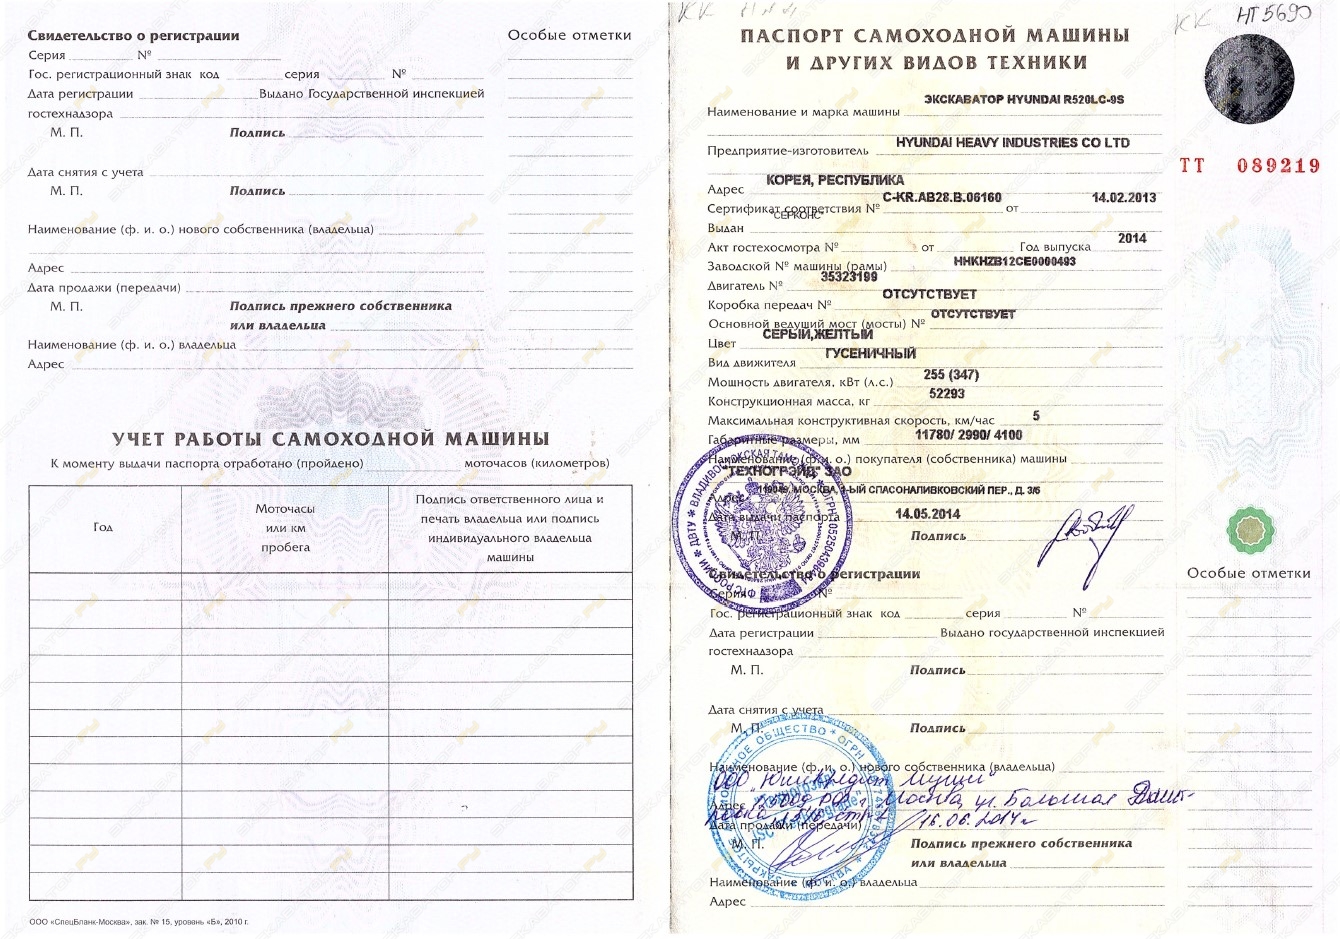 Свидетельство о регистрации
Особые отметки
Серия № 
Гос. регистрационный знак код серия №
Дата регистрации Выдано Государственной инспекцией
гостехнадзора
М. П. Подпись
Дата снятия с учета
М. П. Подпись
Наименование (ф. и. о.) нового собственника (владельца)
Адрес
Дата продажи (передачи)
М. П. Подпись прежнего собственника
или владельца
Наименование (ф. и. о.) владельца
Адрес
УЧЕТ РАБОТЫ САМОХОДНОЙ МАШИНЫ
К моменту выдачи паспорта отработано (пройдено) моточасов (километров)
Год
Моточасы
или км
пробега
Подпись ответственного лица и
печать владельца или подпись
индивидуального владельца
машины
ООО «СпецБланк-Москва», зак. № 15, уровень «Б», 2010 г.
КК
КК НТ5690
ПАСПОРТ САМОХОДНОЙ МАШИНЫ
И ДРУГИХ ВИДОВ ТЕХНИКИ
ТТ 089219
Наименование и марка машины ЭКСКАВАТОР HYUNDAI R520LC-9S
Предприятие-изготовитель HYUNDAI HEAVY INDUSTRIES CO LTD
Адрес КОРЕЯ, РЕСПУБЛИКА
Сертификат соответствия № C-KR.АВ28.В.06160 от 14.02.2013
Выдан "СЕРКОНС"
Акт гостехосмотра № от Год выпуска 2014
Заводской № машины (рамы) HHKHZB12CE0000493
Двигатель № 35323199
Коробка передач № ОТСУТСТВУЕТ
Основной ведущий мост (мосты) № ОТСУТСТВУЕТ
Цвет СЕРЫЙ,ЖЕЛТЫЙ
Вид движителя ГУСЕНИЧНЫЙ
Мощность двигателя, кВт (л.с.) 255 (347)
Конструкционная масса, кг 52293
Максимальная конструктивная скорость, км/час 5
Габаритные размеры, мм 11780/ 2990/ 4100
Наименование (ф. и. о.) покупателя (собственника) машины
"ТЕХНОГРЭЙД" ЗАО
Адрес 119049, МОСКВА, 1-ЫЙ СПАСОНАЛИВКОВСКИЙ ПЕР., Д. 3/5
Дата выдачи паспорта 14.05.2014
М. П. Подпись
Свидетельство о регистрации
Особые отметки
Серия №
Гос. регистрационный знак код серия №
Дата регистрации Выдано государственной инспекцией
гостехнадзора
М. П. Подпись
Дата снятия с учета
М. П. Подпись
Наименование (ф. и. о.) нового собственника (владельца)
ООО "ЮниКредит Лизинг"
Адрес Москва, ул. Большая
Дата продажи (передачи) 16.06.2014г
М. П. Подпись прежнего собственника
или владельца
Наименование (ф. и. о.) владельца
Адрес